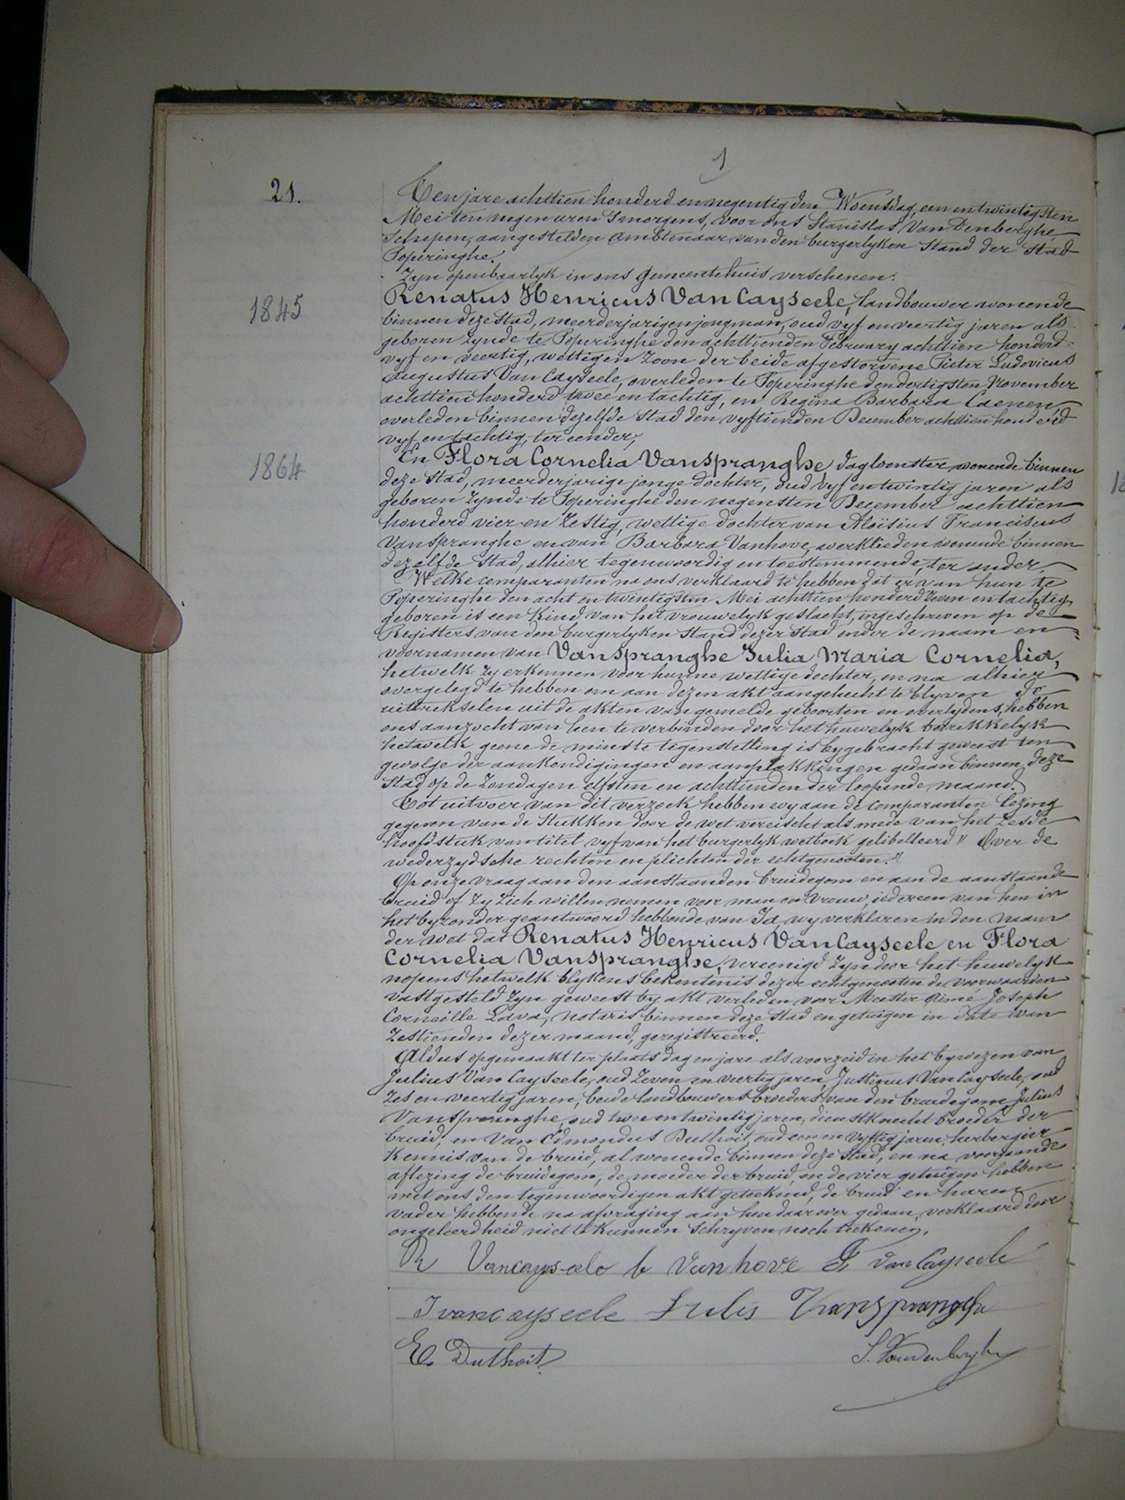 1
21.
Ten jare achttien honderd en negentig den Woensdag, een en twintigsten
Mei ten negen uren 's morgens, voor ons Stanislas Van Denberghe
Schepen, aangestelden Ambtenaar van den burgerlyken Stand der Stad
Poperinghe.
Zyn openbaarlyk in ons Gemeentehuis verschenen:
1845
Renatus Henricus Van Cayseele, landbouwer wonende
binnen deze stad, meerderjarigen jongman, oud vyf en veertig jaren als
geboren zynde te Poperinghe den achttienden February achttien honderd
vyf en veertig, wettigen zoon der beide afgestorvene Pieter Ludovicus
Augustus Van Cayseele, overleden te Poperinghe den dertigsten November
achttien honderd twee en tachtig, en Regina Barbara Caenen
overleden binnen dezelfde Stad den vyftienden December achttien honderd
vyf en tachtig, ter eender,
1864
En Flora Cornelia Vanspranghe, dagloonster, wonende binnen
deze stad, meerderjarige jonge dochter, oud vyf en twintig jaren als
geboren zynde te Poperinghe den negensten December achttien
honderd vier en zestig, wettige dochter van Aloisius Franciscus
Vanspranghe en van Barbara Vanhove, werklieden wonende binnen
dezelfde Stad, alhier tegenwoordig en toestemmende, ter ander,
Welke comparanten na ons verklaard te hebben dat er van hun te
Poperinghe den acht en twintigsten Mei achttien honderd zeven en tachtig
geboren is een kind van het vrouwelyk geslacht, ingeschreven op de
Registers van den burgerlyken Stand dezer Stad onder de naam en
voornamen van Vanspranghe Julia Maria Cornelia,
hetwelk zy erkennen voor hunne wettige dochter, en na alhier
overgelegd te hebben om aan dezen akt aangehecht te blyven de
uittrekselen uit de akten van gemelde geboorten en overlydens, hebben
ons aanzocht van hen te verbinden door het huwelyk betrekkelyk
hetwelk geene de minste tegenstelling is bygebracht geweest ten
gevolge der aankondigingen en aanplakkingen gedaan binnen deze
Stad op de Zondagen elfsten en achttienden der loopende maand.
Tot uitvoer van dit verzoek hebben wy aan de Comparanten lezing
gegeven van de Stukken door de wet vereischt als mede van het zesde
hoofdstuk van titel vyf van het burgerlyk wetboek gelibelleerd " Over de
wederzydsche rechten en plichten der echtgenooten."
Op onze vraag aan den aanstaanden bruidegom en aan de aanstaande
bruid of zy zich willen nemen voor man en vrouw, iedereen van hen in
het byzonder geantwoord hebbende van Ja, wy verklaren in den naam
der wet dat Renatus Henricus Van Cayseele en Flora
Cornelia Vanspranghe, vereenigd zyn door het huwelyk
nopens hetwelk blykens bekentenis dezer echtgenooten de voorwaarden
vastgesteld zyn geweest by akt verleden voor Meester Aimé Joseph
Corneille Lava, notaris binnen deze stad en getuigen in date van
zestienden dezer maand, geregistreerd.
Aldus opgemaakt ter plaats dag en jare als voorzeid in het bywezen van
Julius Van Cayseele, oud zeven en veertig jaren, Justinus Van Cayseele, oud
zes en veertig jaren, beide landbouwers broeders van den bruidegom, Julius
Vanspranghe, oud twee en twintig jaren, dienstknecht broeder der
bruid, en van Edmondus Duthoit, oud een en vyftig jaren, herbergier
kennis van de bruid, al wonende binnen deze Stad, en na voorgaande
aflezing de bruidegom, de moeder der bruid, en de vier getuigen hebben
met ons den tegenwoordigen akt geteekend, de bruid en haren
vader hebbende na afvraging aan hen daarover gedaan, verklaard door
ongeleerdheid niet te kunnen schryven noch teekenen.
R Vancayseele b Vanhove J. Van Cayseele
J vancayseele Julis Vanspranghe
E. Duthoit S. Vandenberghe